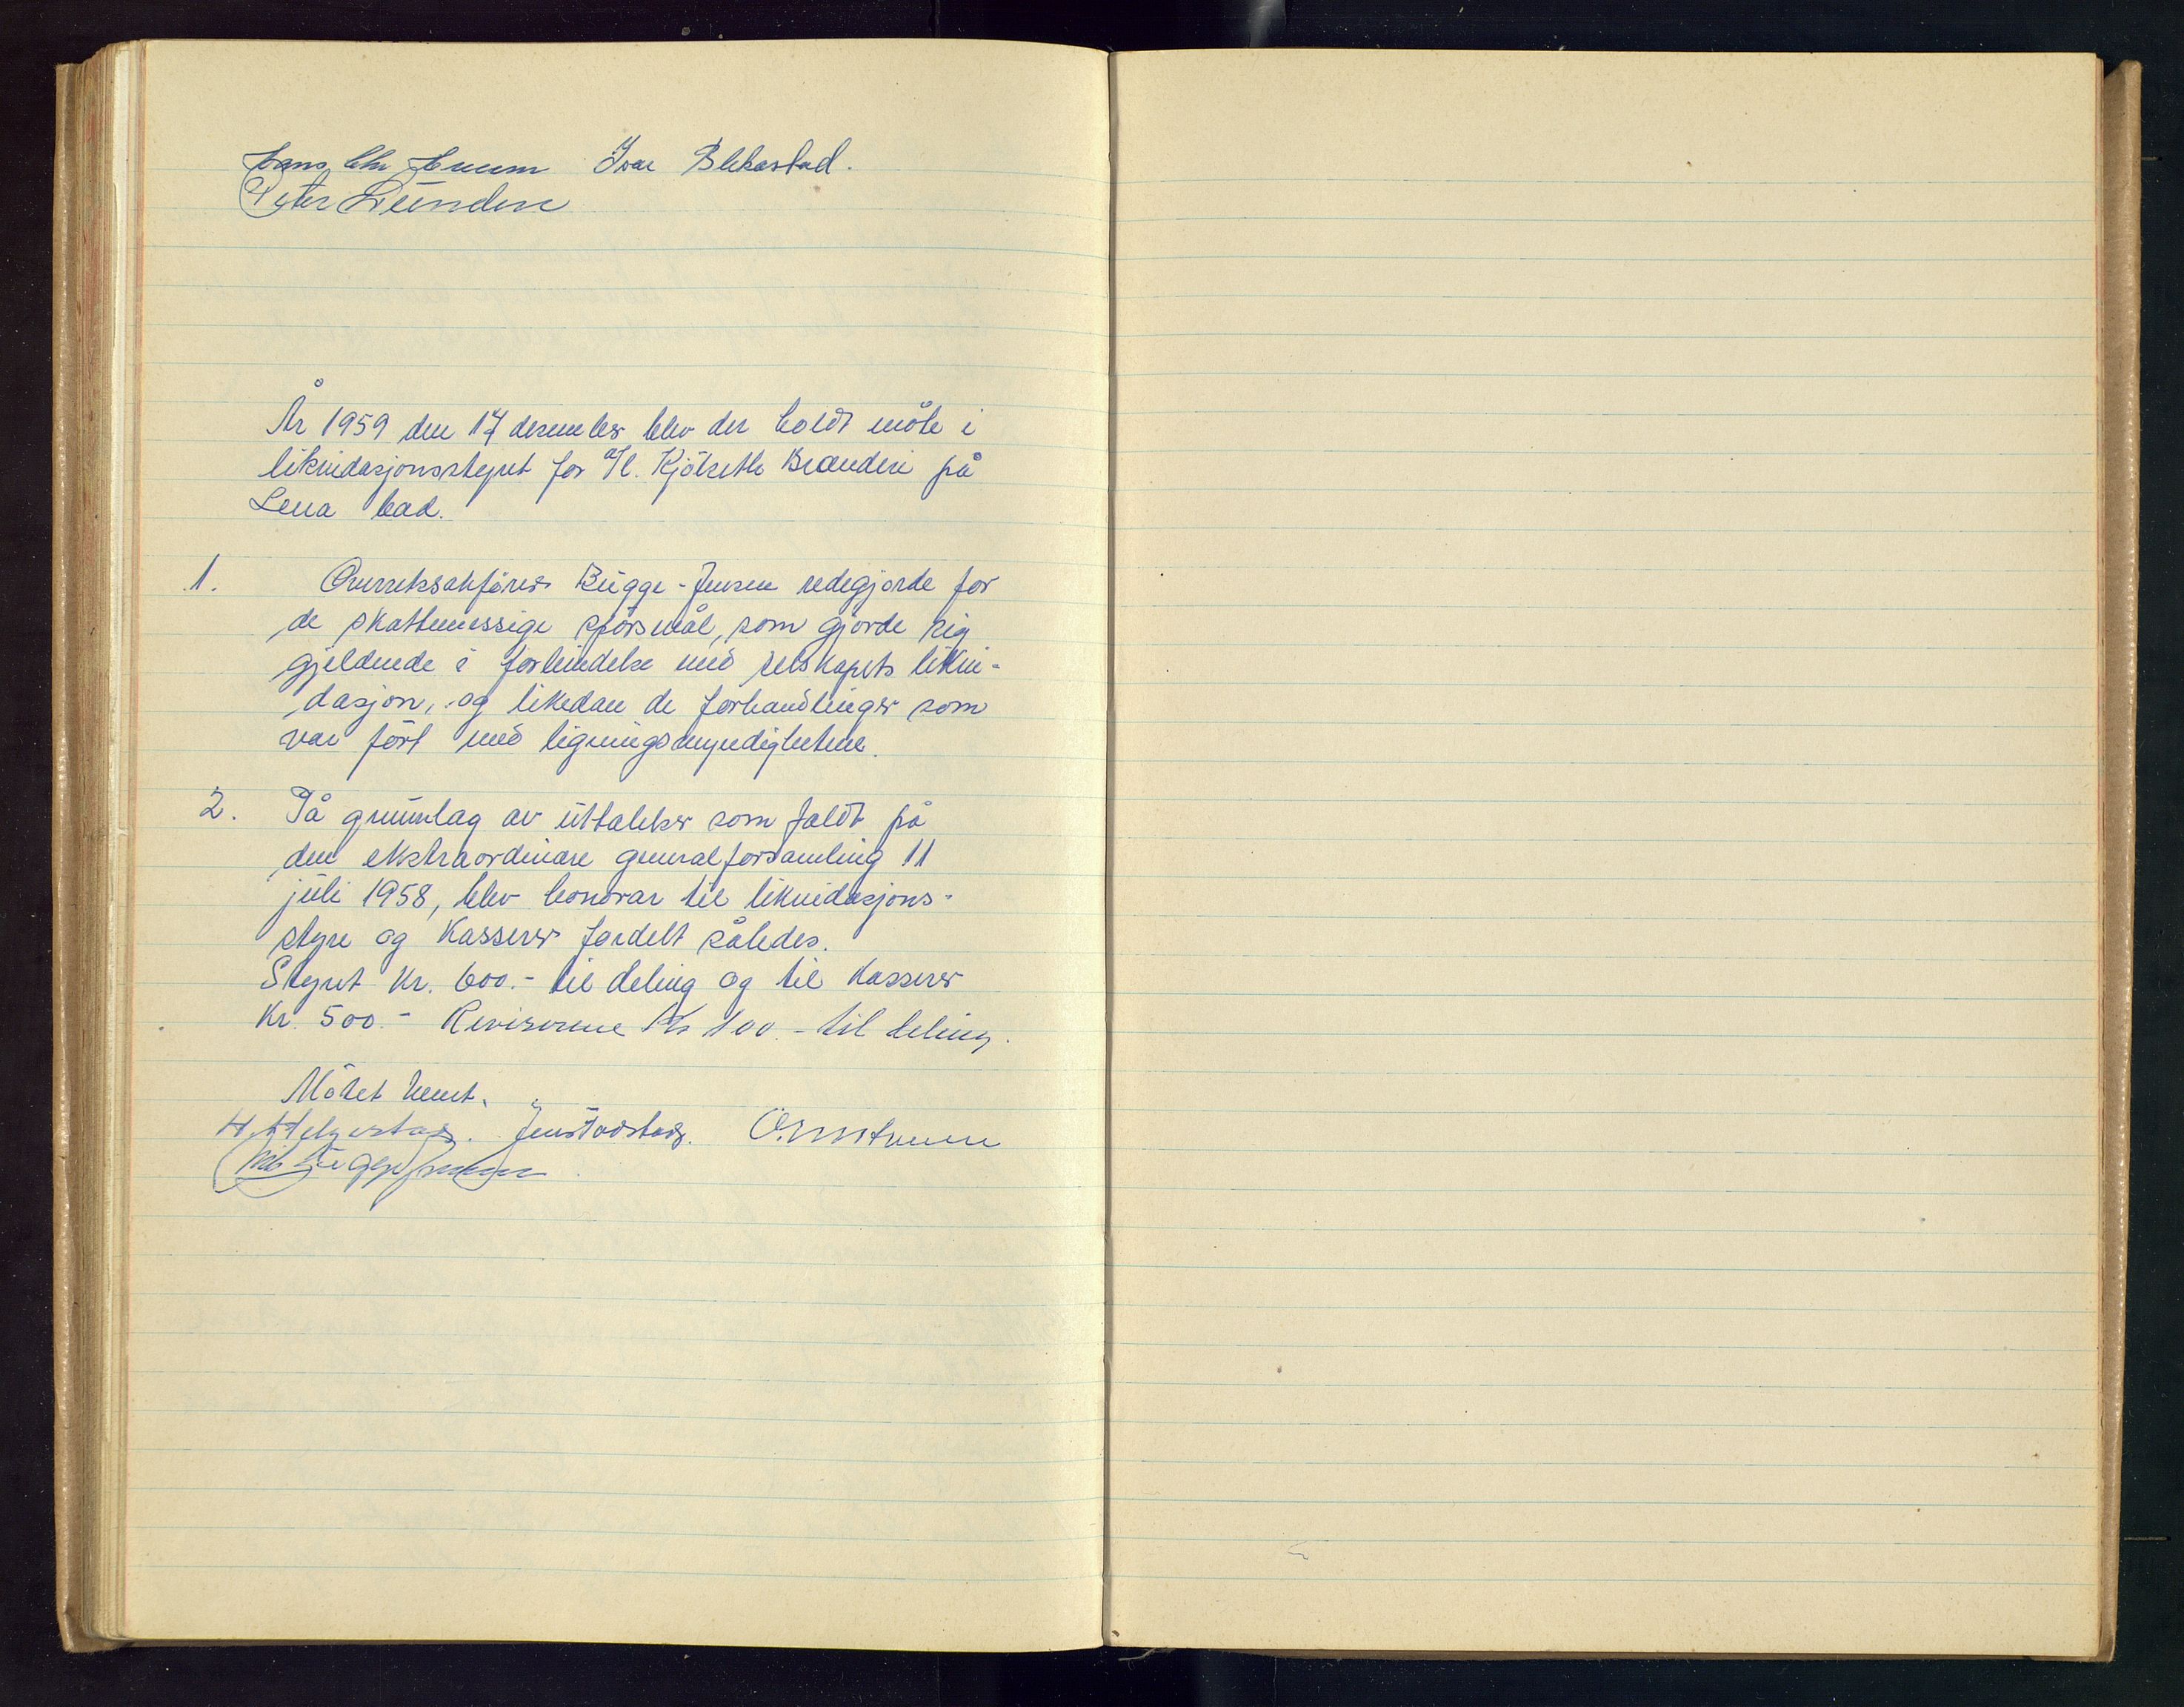 Hans Chr Huum Ivar Blekastad.
Peter Lunden
År 1959 den 17 desember blev der holdt möte i
likvidasjonsstyret for A/l. Kjölseth Brænderi på
Lena bad.
1. Overrettssakförer Bugge-Jensen redegjorde for
de skattemessige spörsmål, som gjorde sig
gjeldende i forbindelse med selskapets likvi-
dasjon, og likedan de forhandlinger som
var fört med ligningsmyndighetene.
2. På grunnlag av uttalelser som faldt på
den ekstraordinære generalforsamling 11
juli 1958, blev honorar til likvidasjons-
styre og kasserer fordelt således.
Styret kr. 600.- til deling og til kasserer
kr. 500.- Revisorene kr 100.- til deling.
Mötet hevet.
H. Helgestad. Jens Todstad.